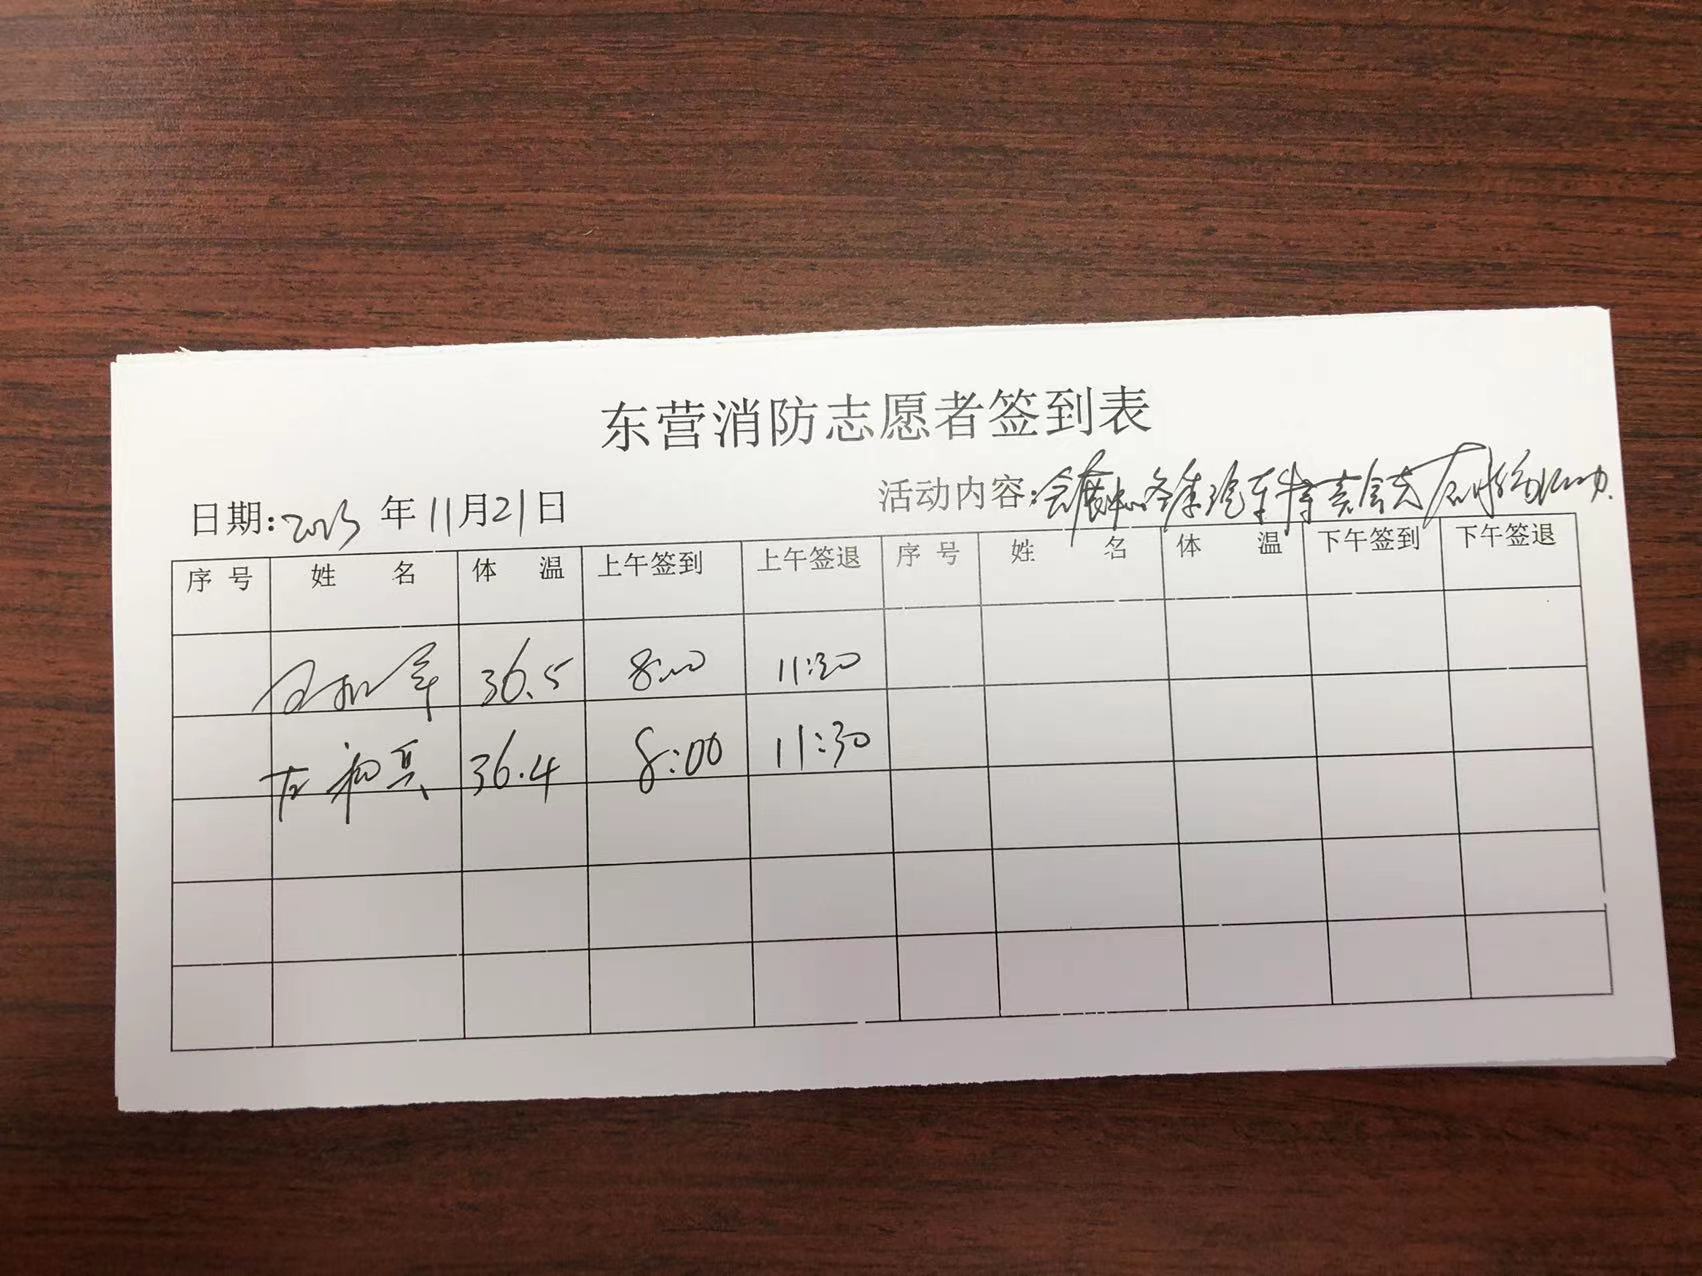 东营消防志愿者签到表
日期:2023年11月21日 活动内容:会展中心冬季汽车特卖会
序号 姓名 体温 上午签到 上午签退 序号 姓名 体温 下午签到 下午签退
36.5 8:00 11:30
36.4 8:00 11:30